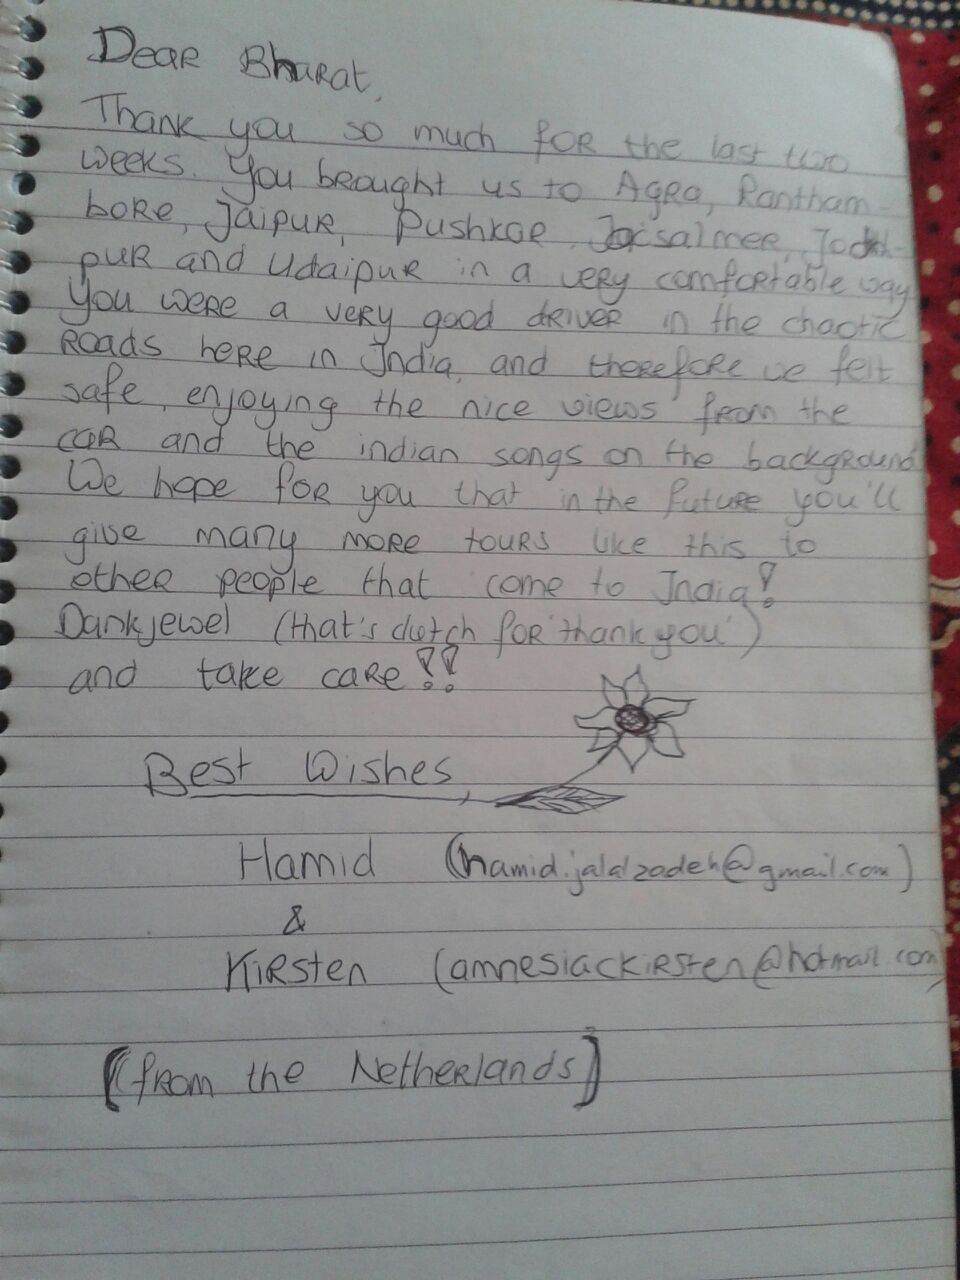 Dear Bharat,
Thank you so much for the last two
weeks. You brought us to Agra, Rantham-
bore, Jaipur, Pushkar, Jaisalmer, Jodh-
pur and Udaipur in a very comfortable way
You were a very good driver in the chaotic
roads here in India, and therefore we felt
safe, enjoying the nice views from the
car and the indian songs on the background
We hope for you that in the future you'll
give many more tours like this to
other people that come to India!
Dankjewel (that's dutch for 'thank you')
and take care!!
Best Wishes,
Hamid (hamid.jalalzadeh@gmail.com)
&
Kirsten (amnesiackirsten@hotmail.com)
(from the Netherlands)